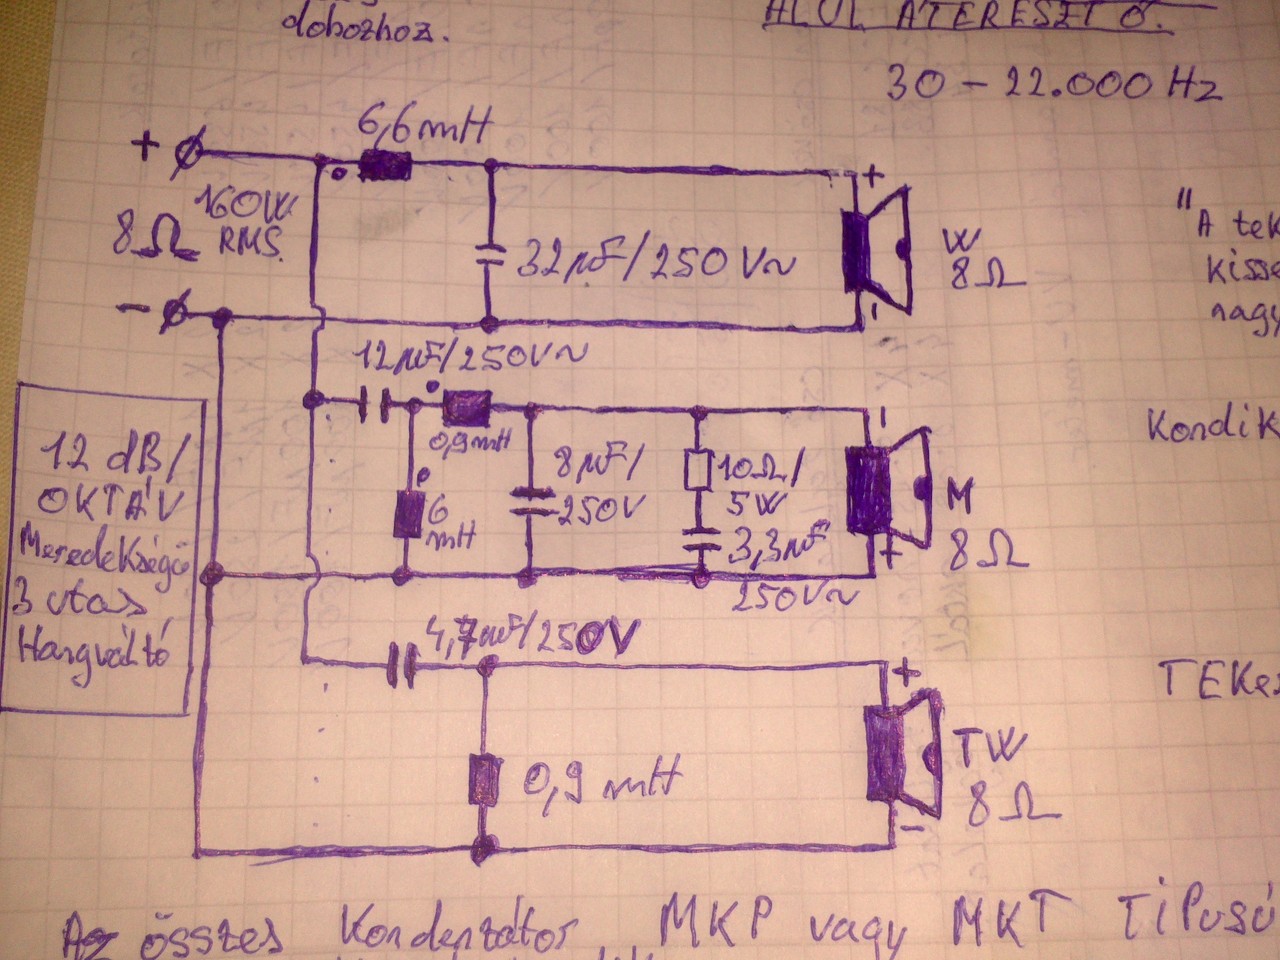 dobozhoz.
ALUL ÁTERESZTŐ.
30 – 22.000 Hz
6,6 mH
+
160W
RMS.
8Ω
32 µF/250V~
+
W
8Ω
-
-
"A tek
kissé
nagy
12 µF/250V~
0,9 mH
6
mH
8 µF/
250V
10Ω/
5W
3,3 µF
250V~
-
M
8Ω
+
Kondik
12 dB/
OKTÁV
Meredekségű
3 utas
Hangváltó
4,7 µF/250V
0,9 mH
+
TW
8Ω
-
TEKer
Az összes Kondenzátor MKP vagy MKT TIPUSÚ